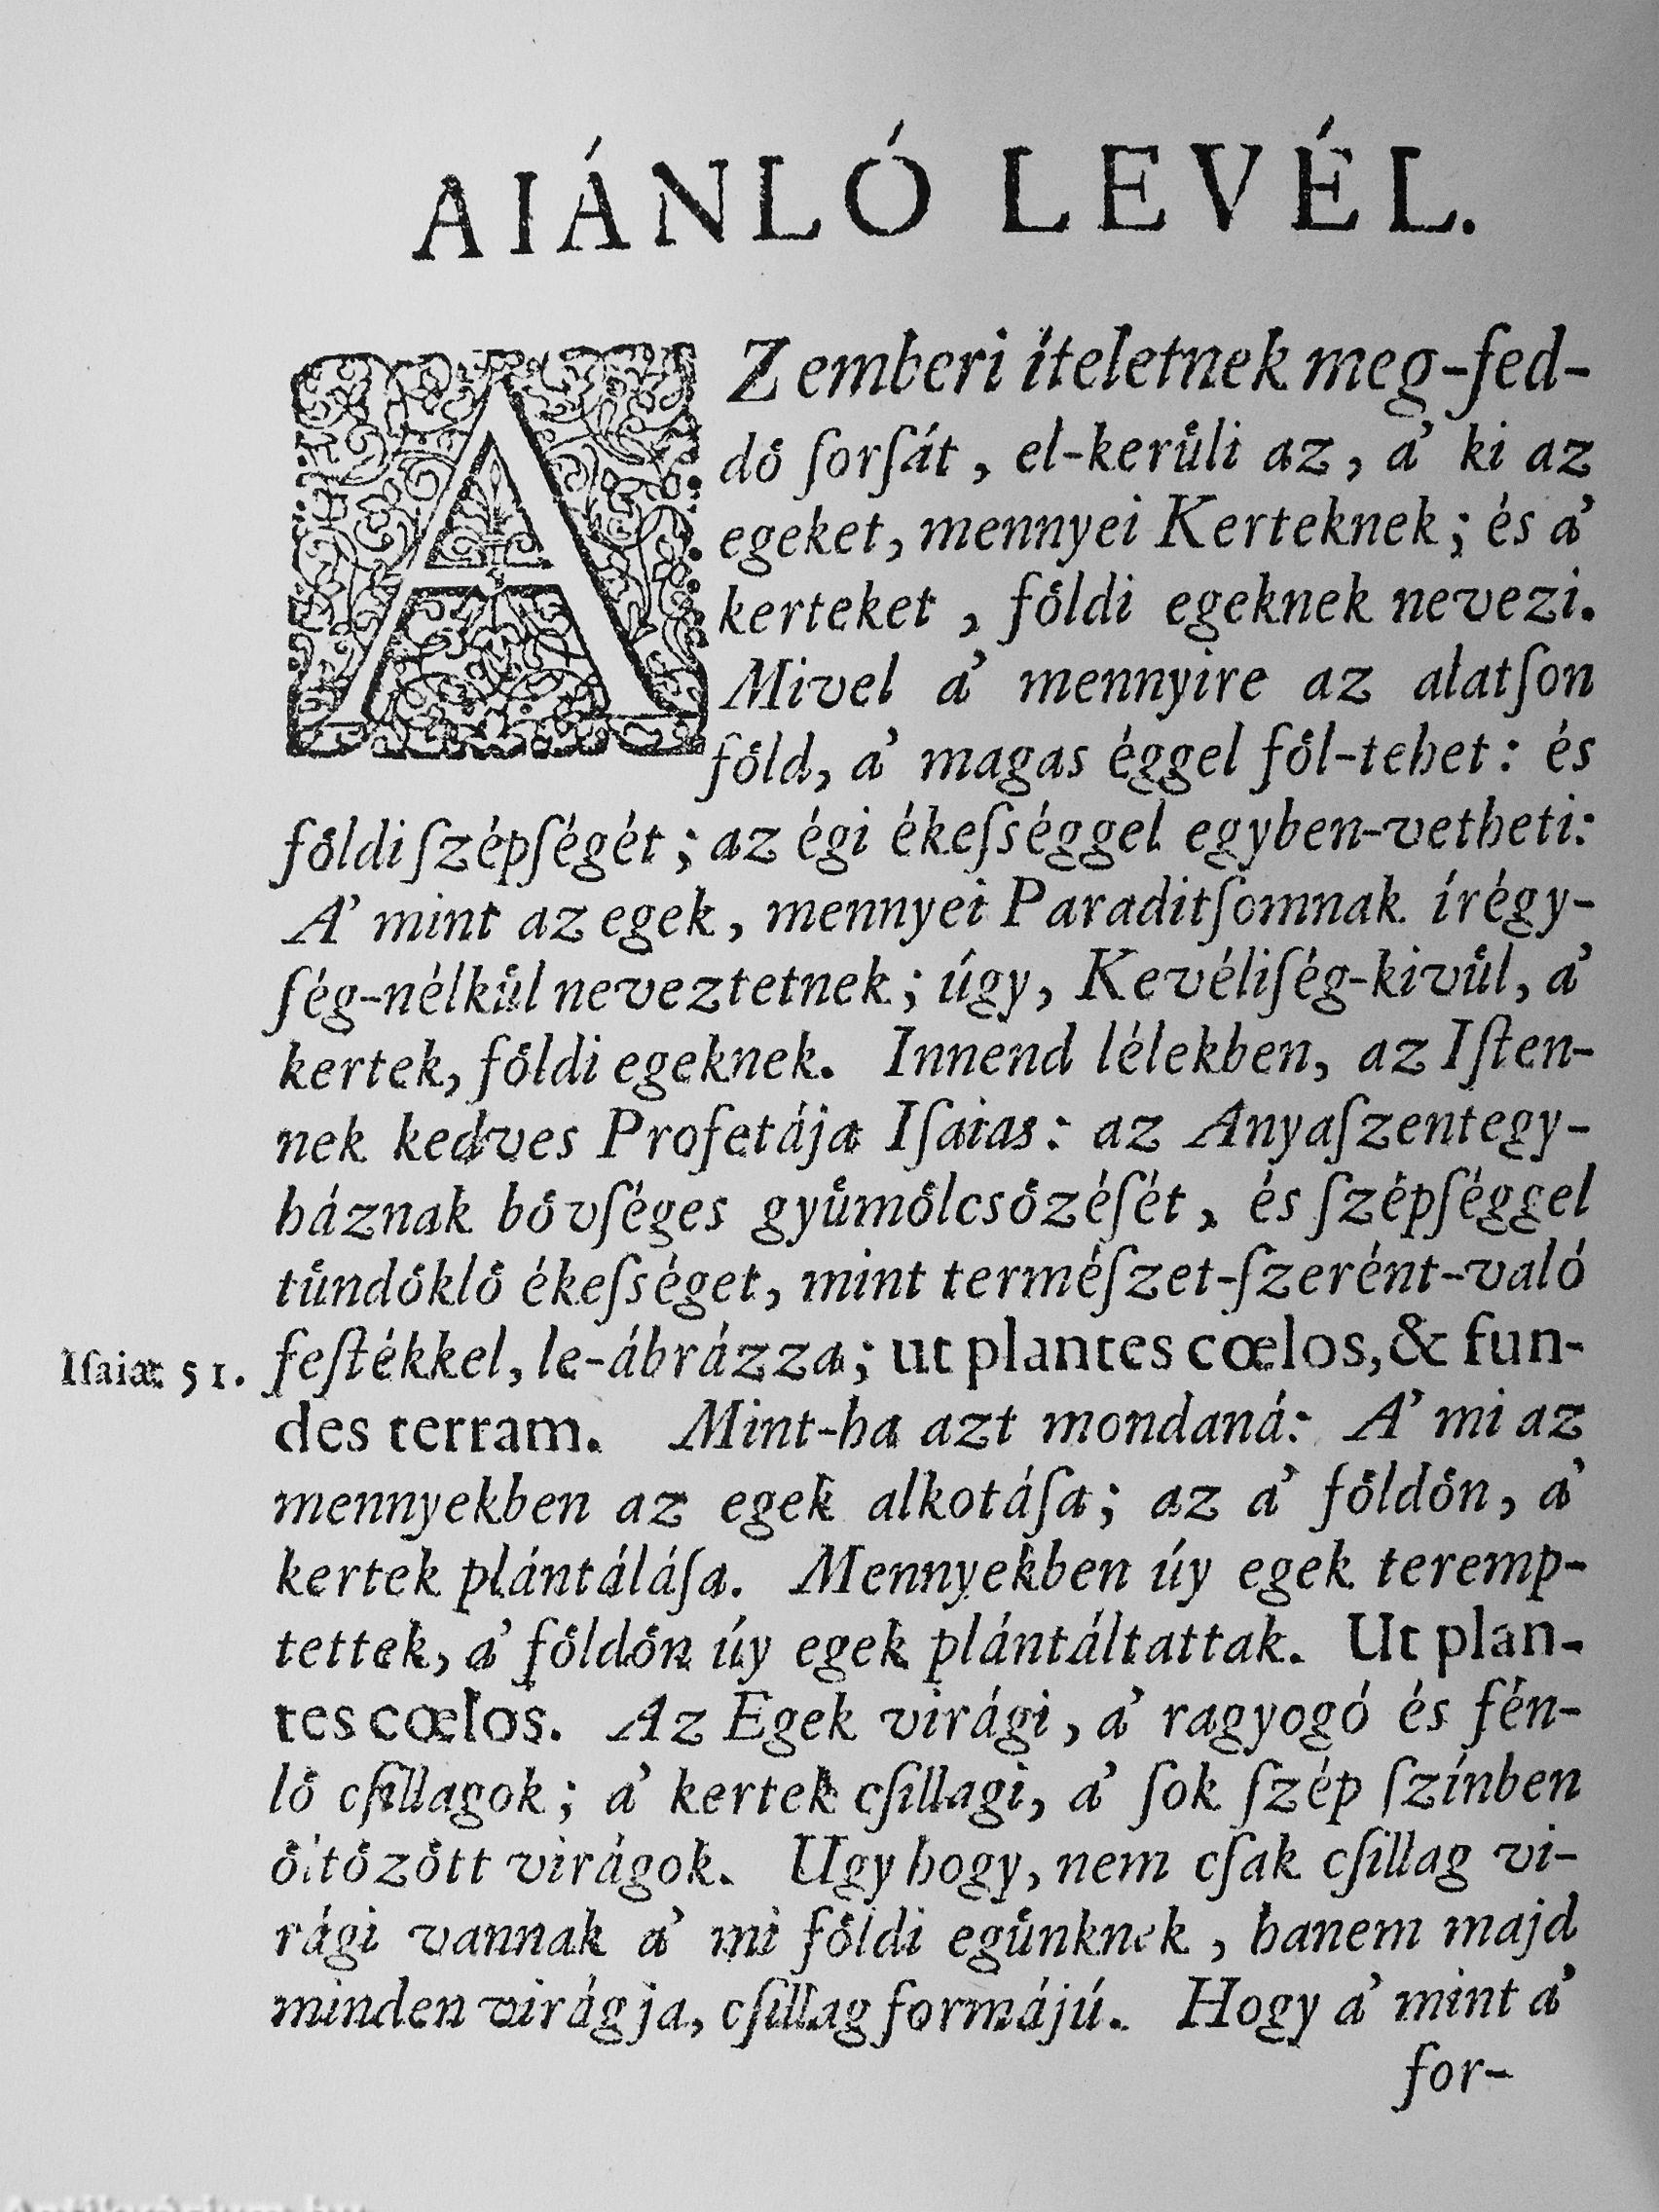 AIÁNLÓ LEVÉL.
AZ emberi íteletnek meg-fed-
dő ſorſát, el-kerůli az, a' ki az
egeket, mennyei Kerteknek; és a'
kerteket, főldi egeknek nevezi.
Mivel a' mennyire az alatſon
főld, a' magas éggel fől-tehet: és
főldi ſzépſégét; az égi ékeſséggel egyben-vetheti:
A' mint az egek, mennyei Paraditſomnak írégy-
ſég-nélkůl neveztetnek; úgy, Kevéliſég-kivůl, a'
kertek, főldi egeknek. Innend lélekben, az Iſten-
nek kedves Profetája Iſaias: az Anyaſzentegy-
háznak bővſéges gyůmőlcsőzéſét, és ſzépſéggel
tůndőklő ékeſséget, mint terméſzet-ſzerént-való
Iſaiæ 51. feſtékkel, le-ábrázza; ut plantes cœlos, & fun-
des terram. Mint-ha azt mondaná: A' mi az
mennyekben az egek alkotáſa; az a' főldőn, a'
kertek plántáláſa. Mennyekben úy egek teremp-
tettek, a' főldőn úy egek plántáltattak. Ut plan-
tes cœlos. Az Egek virági, a' ragyogó és fén-
lő cſillagok; a' kertek cſillagi, a' ſok ſzép ſzínben
őltőzőtt virágok. Ugy hogy, nem cſak cſillag vi-
rági vannak a' mi főldi egůnknek, hanem majd
minden virágja, cſillag formájú. Hogy a' mint a'
for-